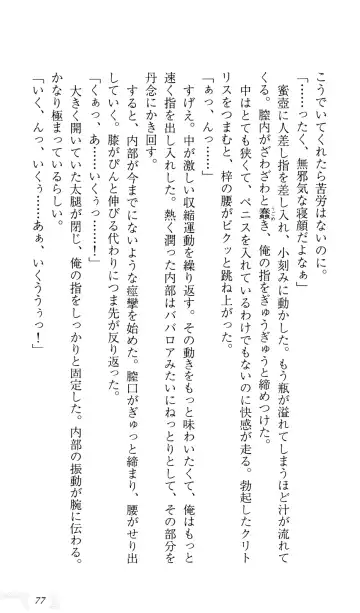 こうでいてくれたら苦労はないのに。
「……ったく、無邪気な寝顔だよなぁ」
蜜壺に人差し指を差し入れ、小刻みに動かした。もう瓶が溢れてしまうほど汁が流れて
くる。膣内がざわざわと蠢き、俺の指をぎゅうぎゅうと締めつけた。
中はとても狭くて、ペニスを入れているわけでもないのに快感が走る。勃起したクリト
リスをつまむと、梓の腰がビクッと跳ね上がった。
「ぁっ、んっ……」
すげえ。中が激しい収縮運動を繰り返す。その動きをもっと味わいたくて、俺はもっと
速く指を出し入れした。熱く潤った内部はババロアみたいにねっとりとして、その部分を
丹念にかき回す。
すると、内部が今までにないような痙攣を始めた。膣口がぎゅっと締まり、腰がせり出
していく。膝がぴんと伸びる代わりにつま先が反り返った。
「くぁっ、あ……いくぅっ……！」
大きく開いていた太腿が閉じ、俺の指をしっかりと固定した。内部の振動が腕に伝わる。
かなり極まっているらしい。
「いく、んっ、いぐぅ……あぁ、いくううぅっ！」
77